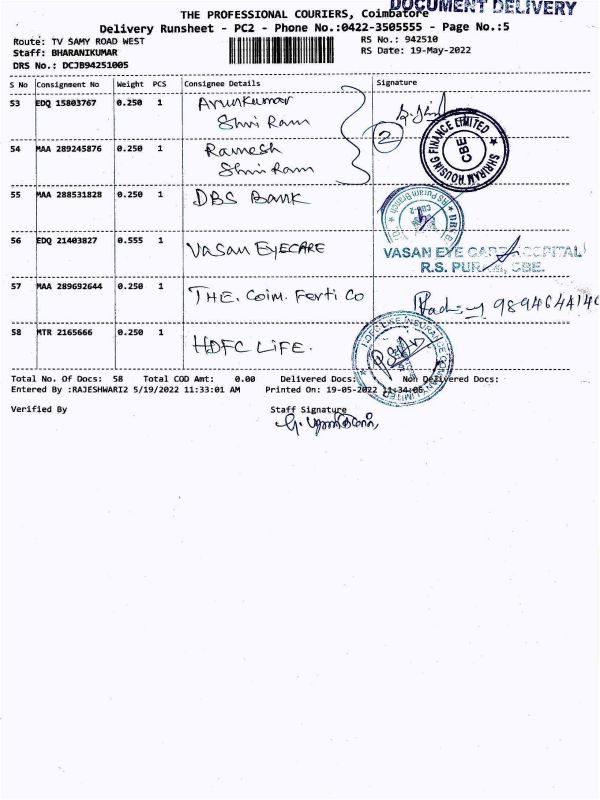 DOCUMENT DELIVERY
THE PROFESSIONAL COURIERS, Coimbatore
Delivery Runsheet - PC2 - Phone No.:0422-3505555 - Page No.:5
Route: TV SAMY ROAD WEST
RS No.: 942510
Staff: BHARANIKUMAR
RS Date: 19-May-2022
DRS No.: DCJB94251005
S No Consignment No Weight PCS Consignee Details Signature
53 EDQ 15803767 0.250 1 Arunkumar
Shri Ram
54 MAA 289245876 0.250 1 Ramesh
Shri Ram
2
SHRIRAM HOUSING FINANCE LIMITED
CBE
55 MAA 288531828 0.250 1 DBS Bank
RS Puram Branch
CBE-2
56 EDQ 21403827 0.555 1 Vasan EYECARE
VASAN EYE CARE HOSPITAL
R.S. PURAM, CBE.
57 MAA 289692644 0.250 1 THE. Coim. Ferti Co
58 MTR 2165666 0.250 1 HDFC LIFE.
HDFC LIFE INSURANCE COMPANY LIMITED
Total No. Of Docs: 58 Total COD Amt: 0.00 Delivered Docs: Non Delivered Docs:
Entered By :RAJESHWARI2 5/19/2022 11:33:01 AM Printed On: 19-05-2022 11:34:06
Verified By Staff Signature